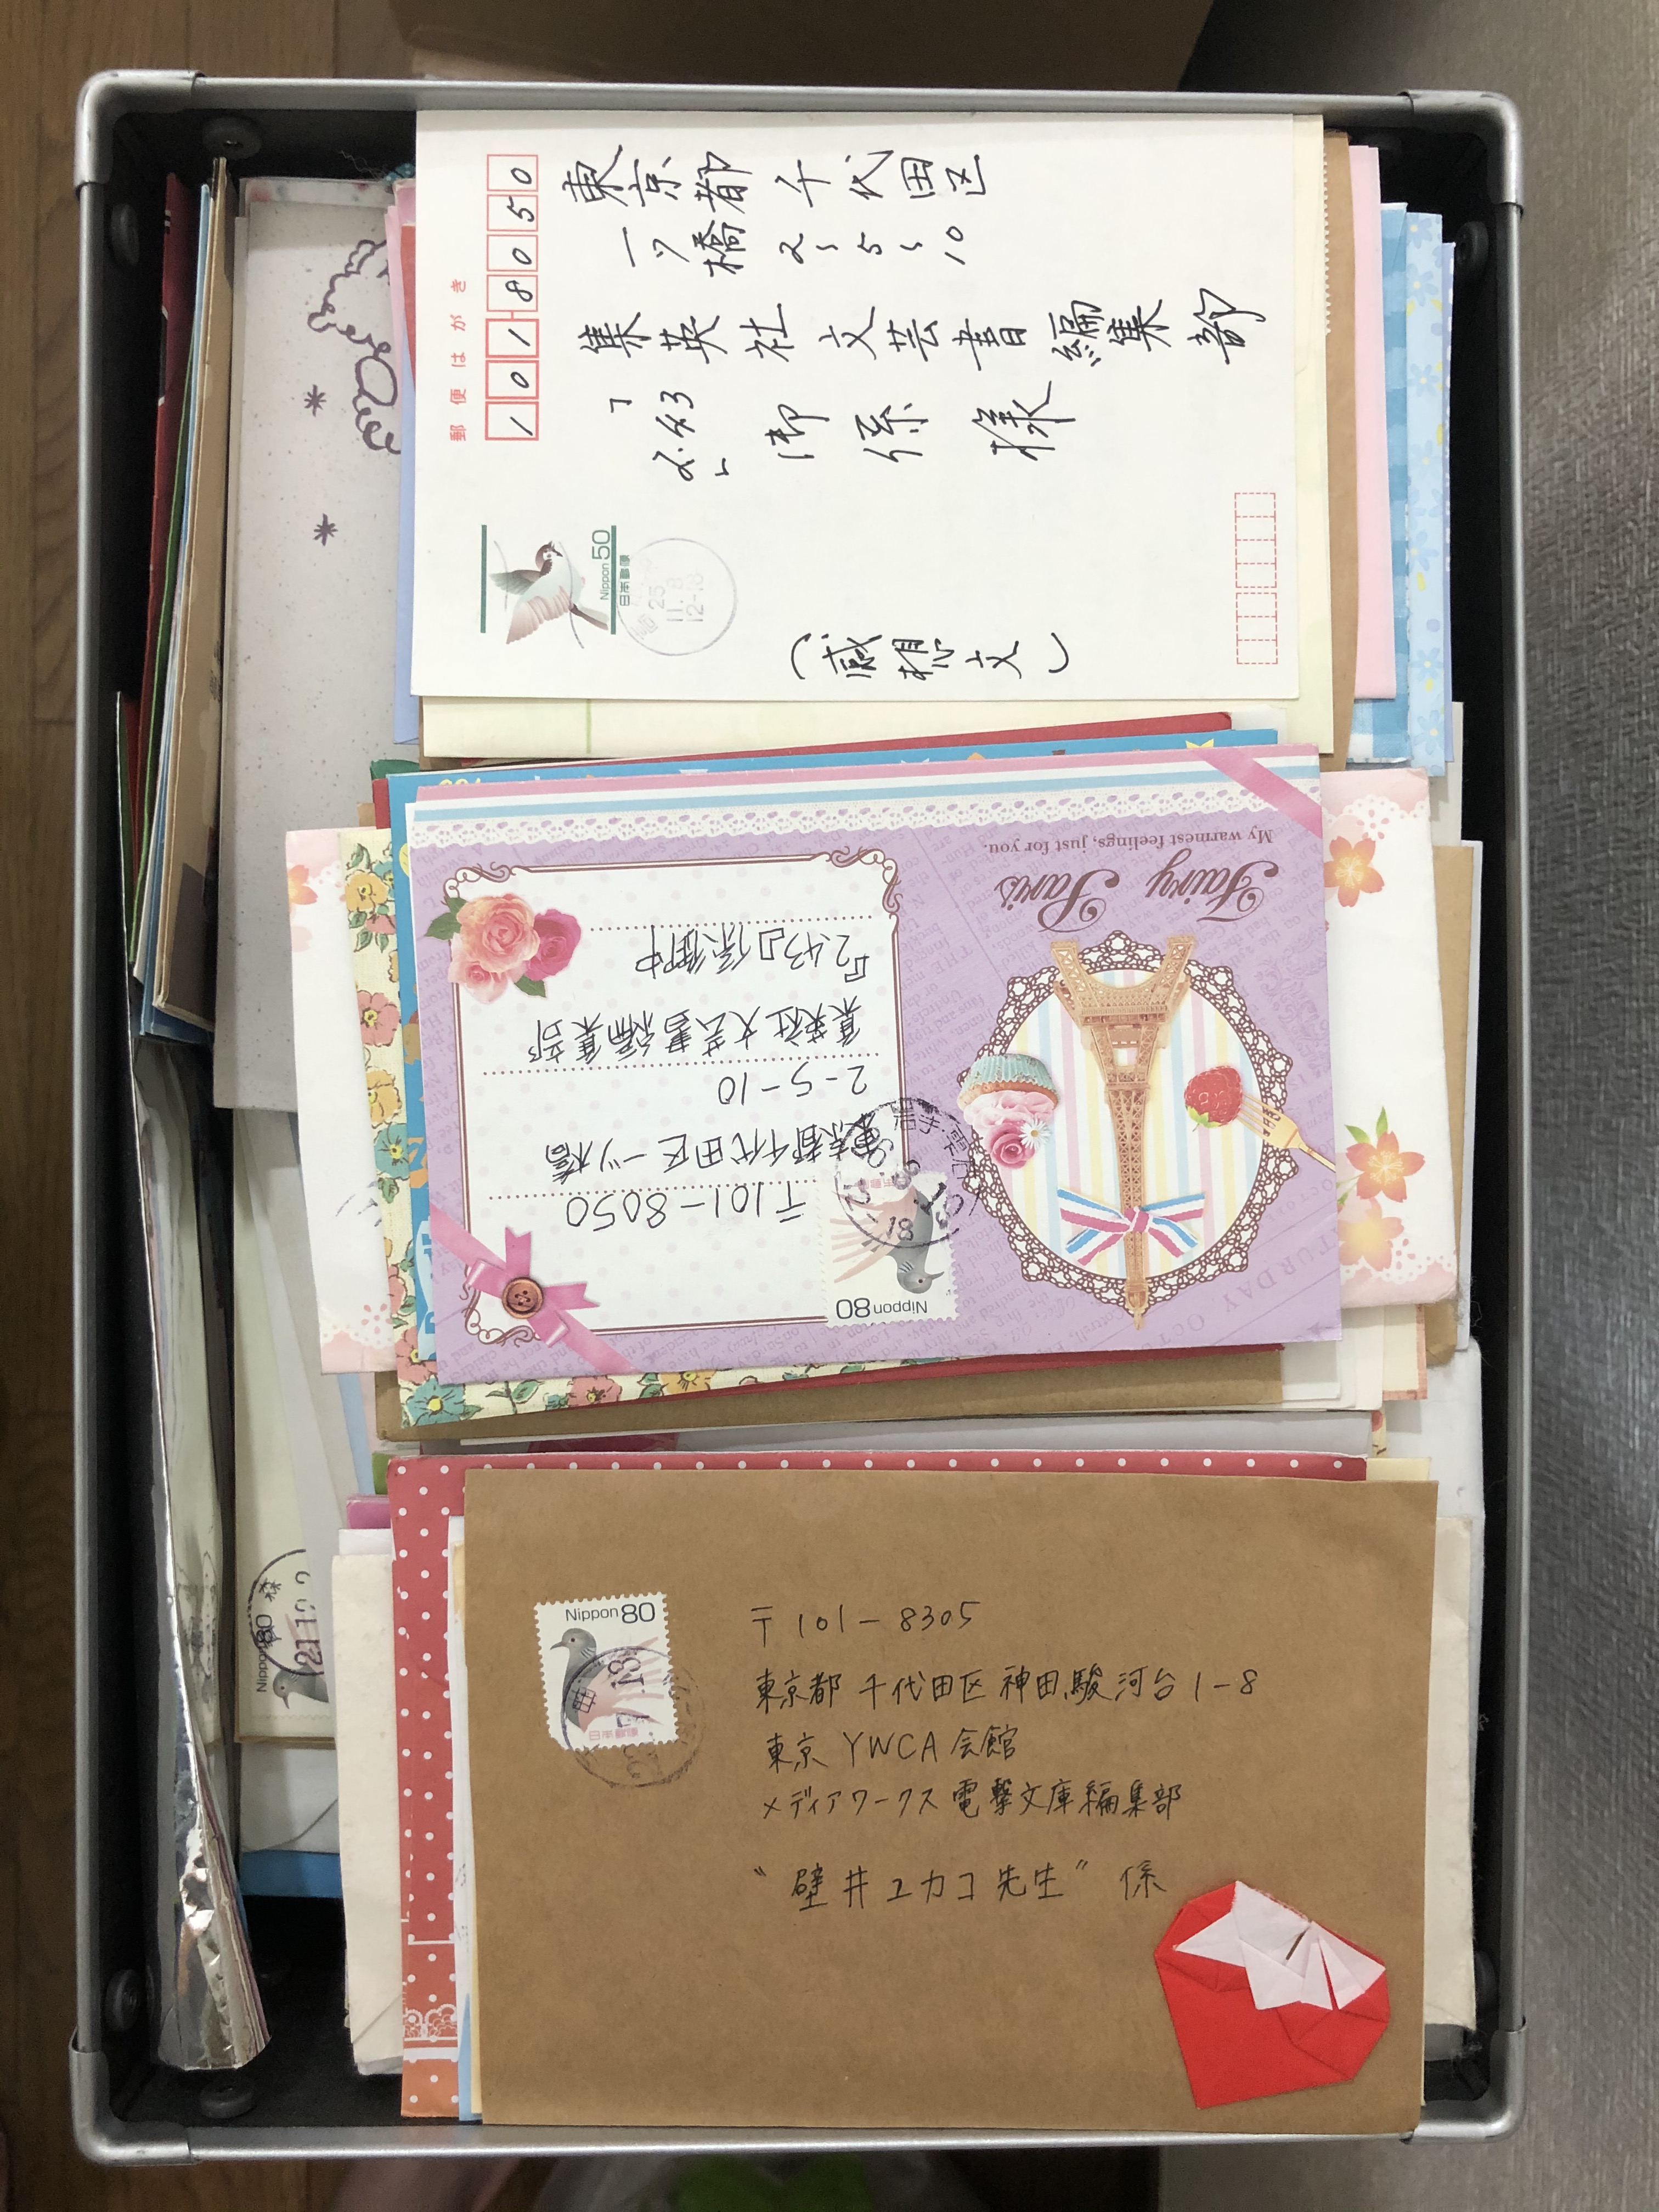 郵便はがき
101-8050
東京都千代田区
一ツ橋2-5-10
集英社文芸書編集部
「2.43」御係様
(感想文)
Nippon 50
日本郵便
25
11.8
12-18
My warmest feelings, just for you.
Fairy Paris
〒101-8050
東京都千代田区一ツ橋
2-5-10
集英社文芸書編集部
『2.43』係御中
Nippon 80
OCTO
TURDAY
Nippon 80
Nippon 80
日本郵便
〒101-8305
東京都千代田区神田駿河台1-8
東京YWCA会館
メディアワークス電撃文庫編集部
"壁井ユカコ先生"係